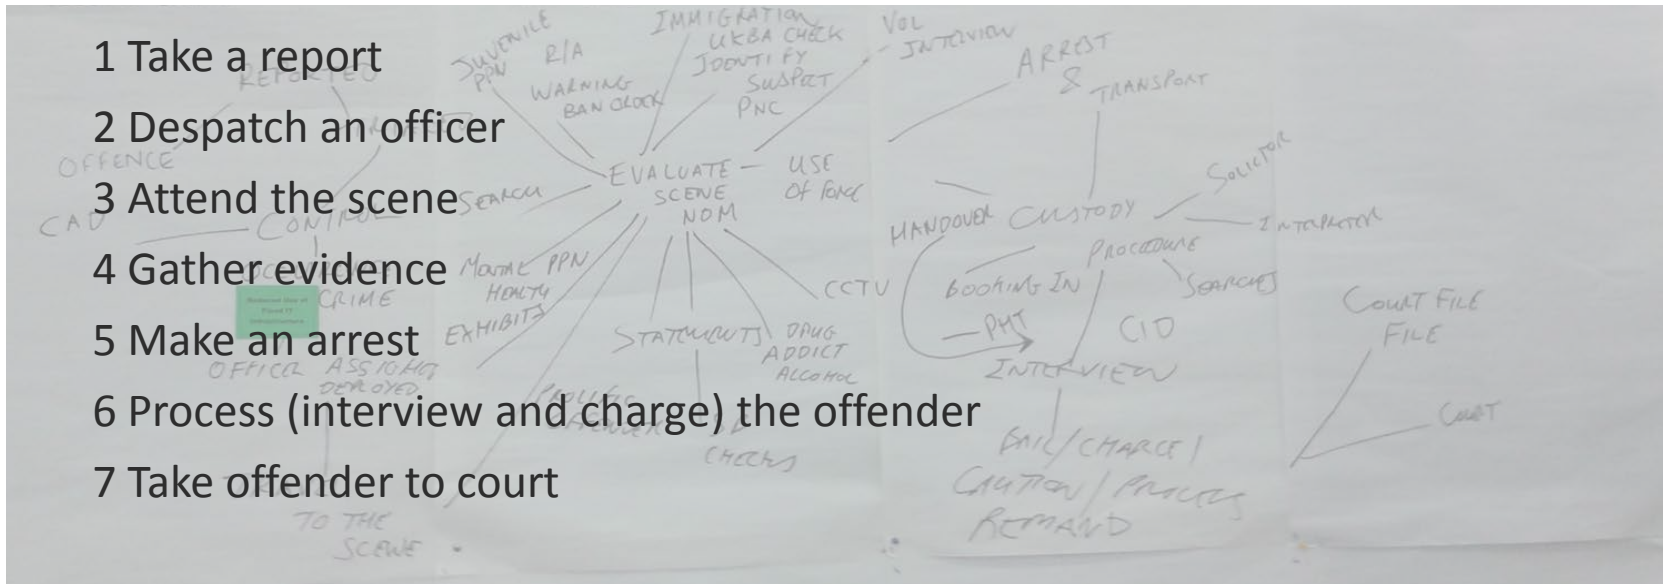 1 Take a report
2 Despatch an officer
3 Attend the scene
4 Gather evidence
5 Make an arrest
6 Process (interview and charge) the offender
7 Take offender to court
REPORTED
OFFENCE
CAD
CONTROL
CRIME
OFFICER ASSIGNED
DEPLOYED
TO THE
SCENE
JUVENILE
PPN
R/A
WARNING
IMMIGRATION
UKBA CHECK
IDENTIFY
SUSPECT
PNC
VOL
INTERVIEW
EVALUATE
SCENE
NDM
USE
OF FORCE
SEARCH
MENTAL PPN
HEALTH
EXHIBITS
STATEMENTS
DRUG
ADDICT
ALCOHOL
CCTV
CHECKS
ARREST
&
TRANSPORT
HANDOVER
CUSTODY
PROCEDURE
SOLICITOR
INTERPRETER
SEARCHES
BOOKING IN
CID
INTERVIEW
BAIL/CHARGE/
CAUTION/PROCESS
REMAND
COURT FILE
FILE
COURT